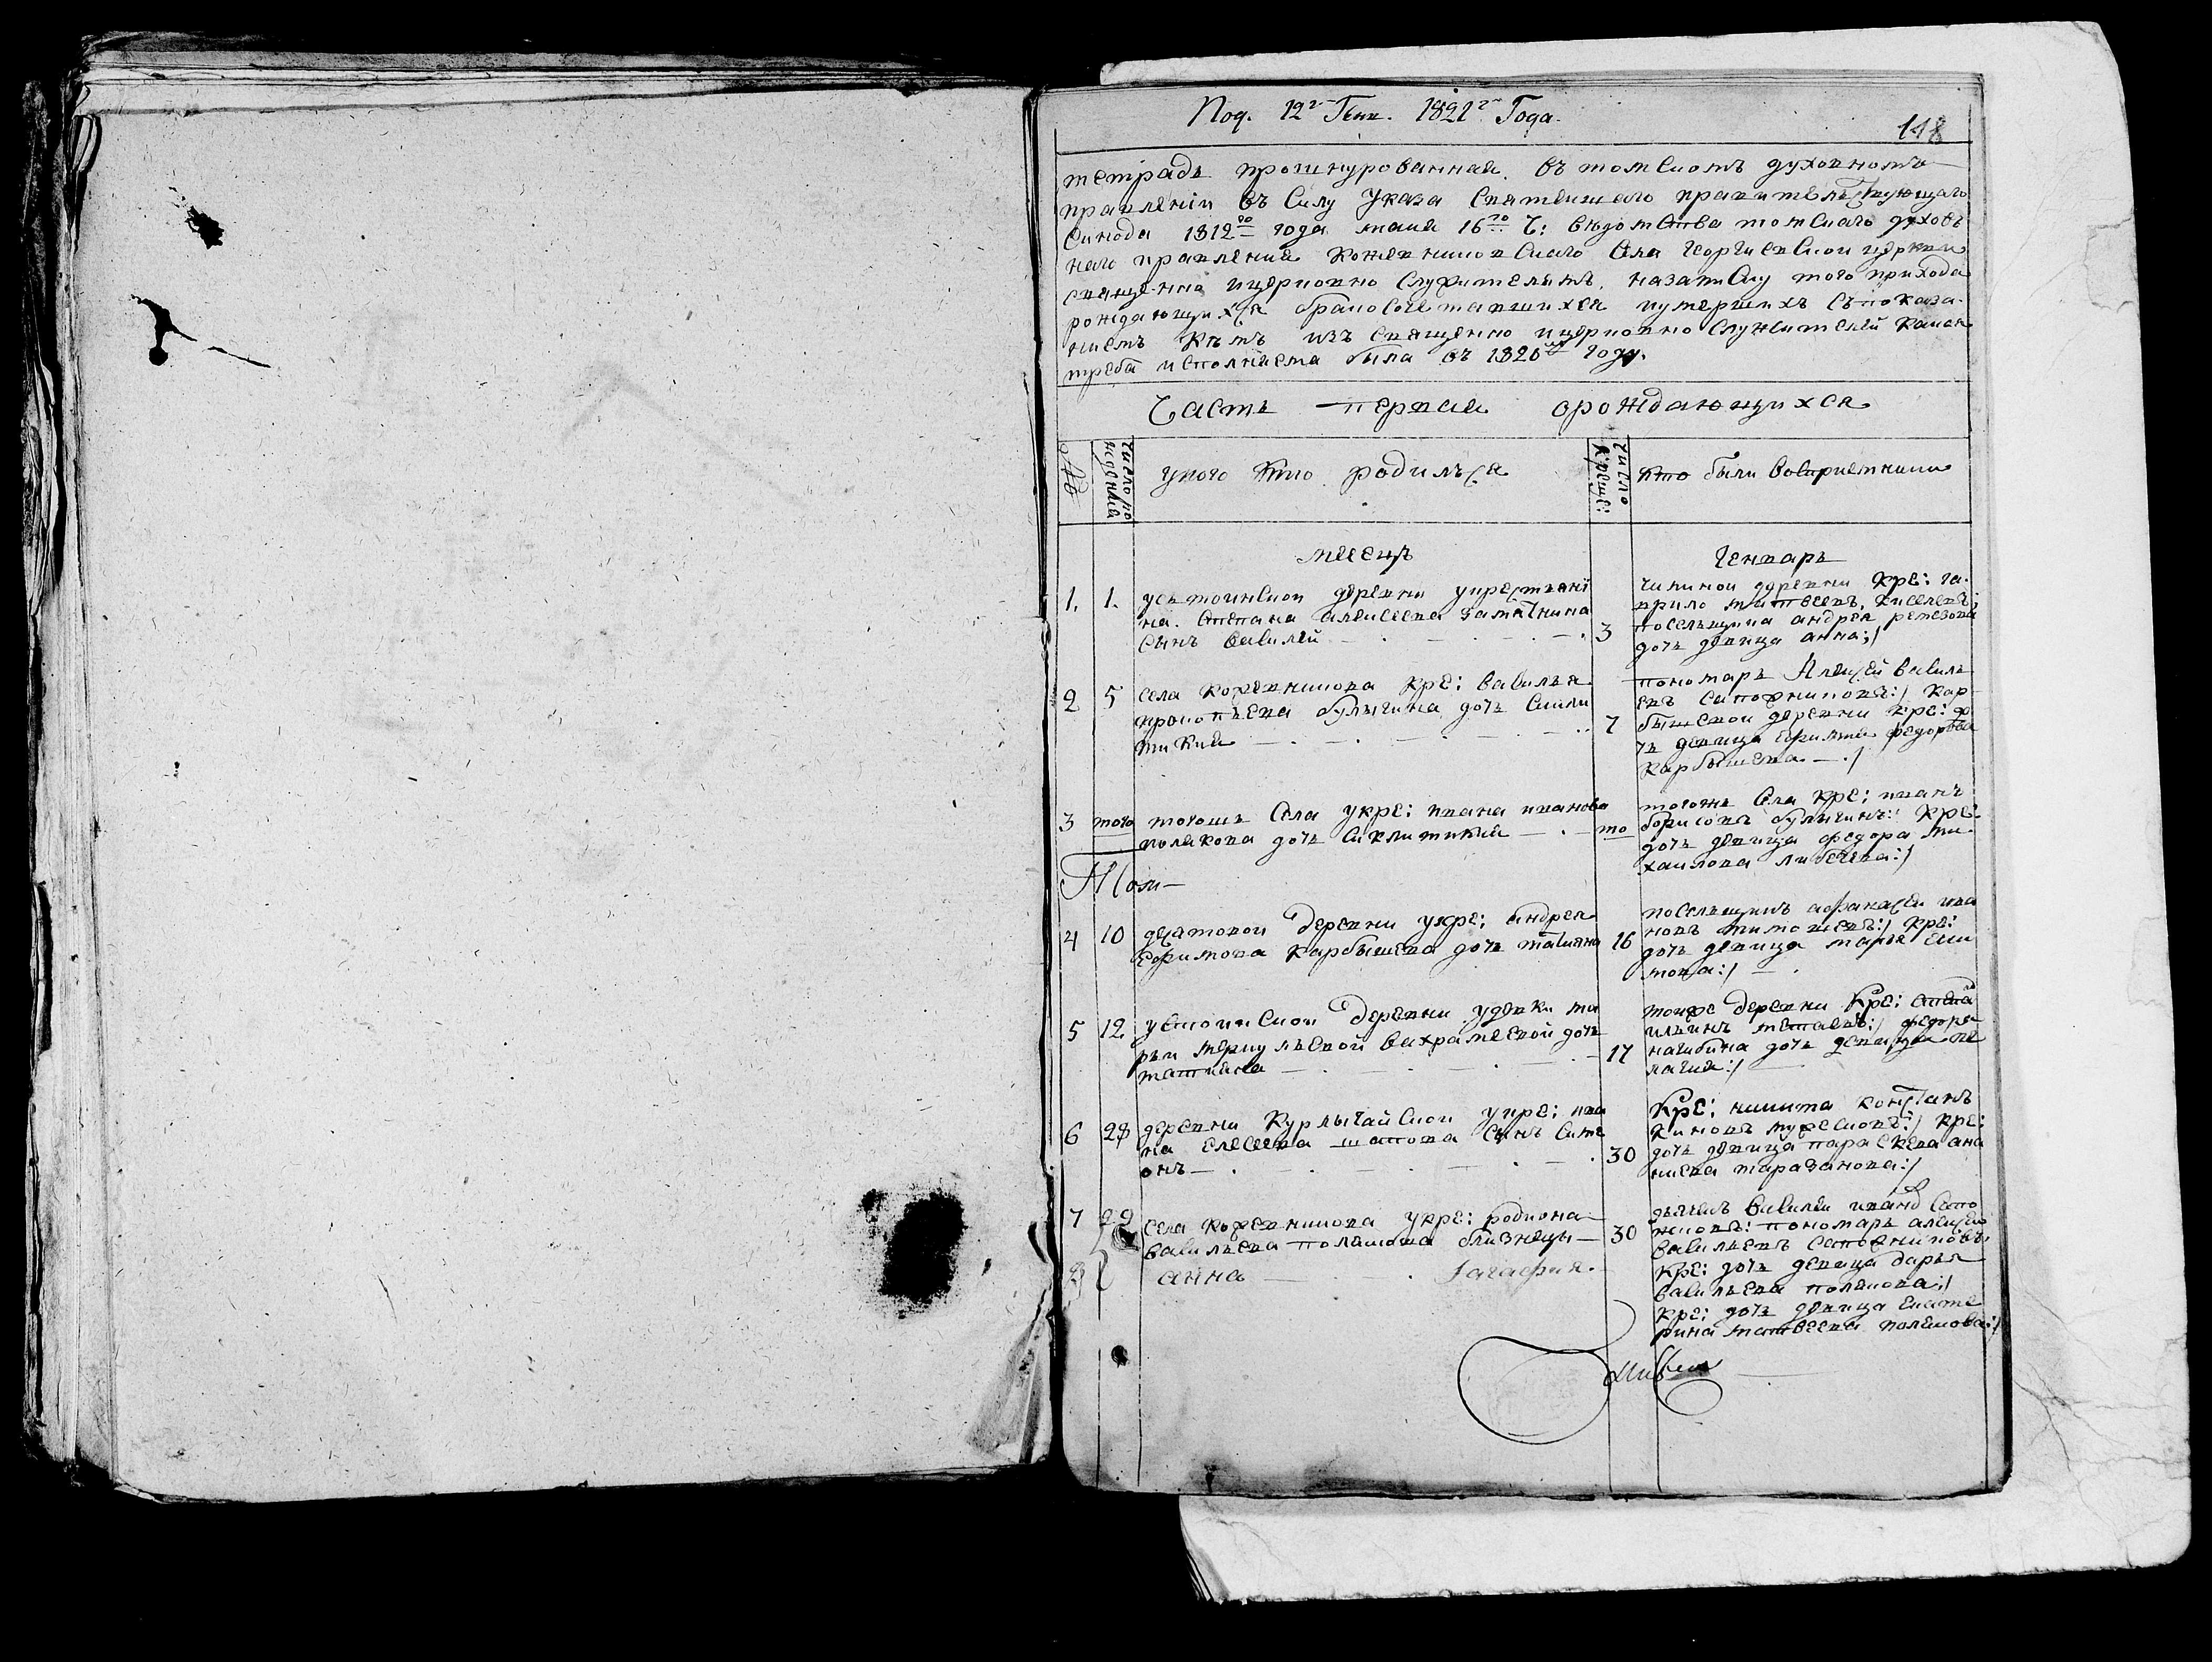 Под. 12го Генв. 1821го Года.
118
тетрадь прошнурованная. въ томскомъ духовномъ
правленіи въ Силу Указа Святеишаго правительствующаго
Синода 1812го года маия 16го Ч: вѣдомства томскаго духовъ
наго правления кожевниковскаго Села Георгиевскои церкви
священно ицерковно служителямъ. назаписку того прихода
рождающихся бракосочетавшихся иумершихъ съпоказа-
ниемъ кѣмъ изъ священно ицерковно служителей какая
треба исполняема была въ 1820мъ году.
Часть первая орождающихся
№
число ро
ждения
укого кто родилъся
число
креще:
кто были восприемники
месецъ
Генварь
1. 1.
устоинскои деревни укрестьяни
на. Степана алексеева
сынъ василей
3
деревни кре: га-
врило матвеевъ. киселевъ;
посельщика андрея ремезова
дочь девица анна:/
2 5
села кожевникова кре: василья
прокопьева булыгина дочь Сикли
тикия
7
пономарь Алексей василь
евъ сапожниковъ:/ кар-
бышевои деревни кре: до
чь девица федорова
карбышева.
3 того
тогожъ села укре: ивана иванова
полякова дочь сиклитикия
то
тогоже села кре: иванъ
борисовъ булыгинъ: кре:
дочь девица федора ми-
хаилова
4 10
десятовои деревни укре: андрея
ефимова карбышева дочь татияна
16
посельщикъ афанасеи ива
новъ тимошевъ:/ кре:
дочь девица марья
мова:/
5 12
устоинскои деревни. удевки ма
рьи меркульевой вахрамеевой дочь
татияна
17
тойже деревни кре:
ильинъ федора
нагибина дочь девица пе
лагия:/
6 28
деревни курлыгайскои укре: ива
на елесеева шапова сынъ симе
онъ
30
кре: никита констанъ
киновъ кре:
дочь девица параскева ана
ниева тараканова:/
7 29
села кожевникова укре: родиона
васильева полякова близнецы
30
дьячекъ василеи сапо
жниковъ: пономарь алексей
васильевъ сапожниковъ.
8
анна агафия.
кре: дочь девица дарья
васильева полякова:/
кре: дочь девица екате
рина матвеева полякова:/